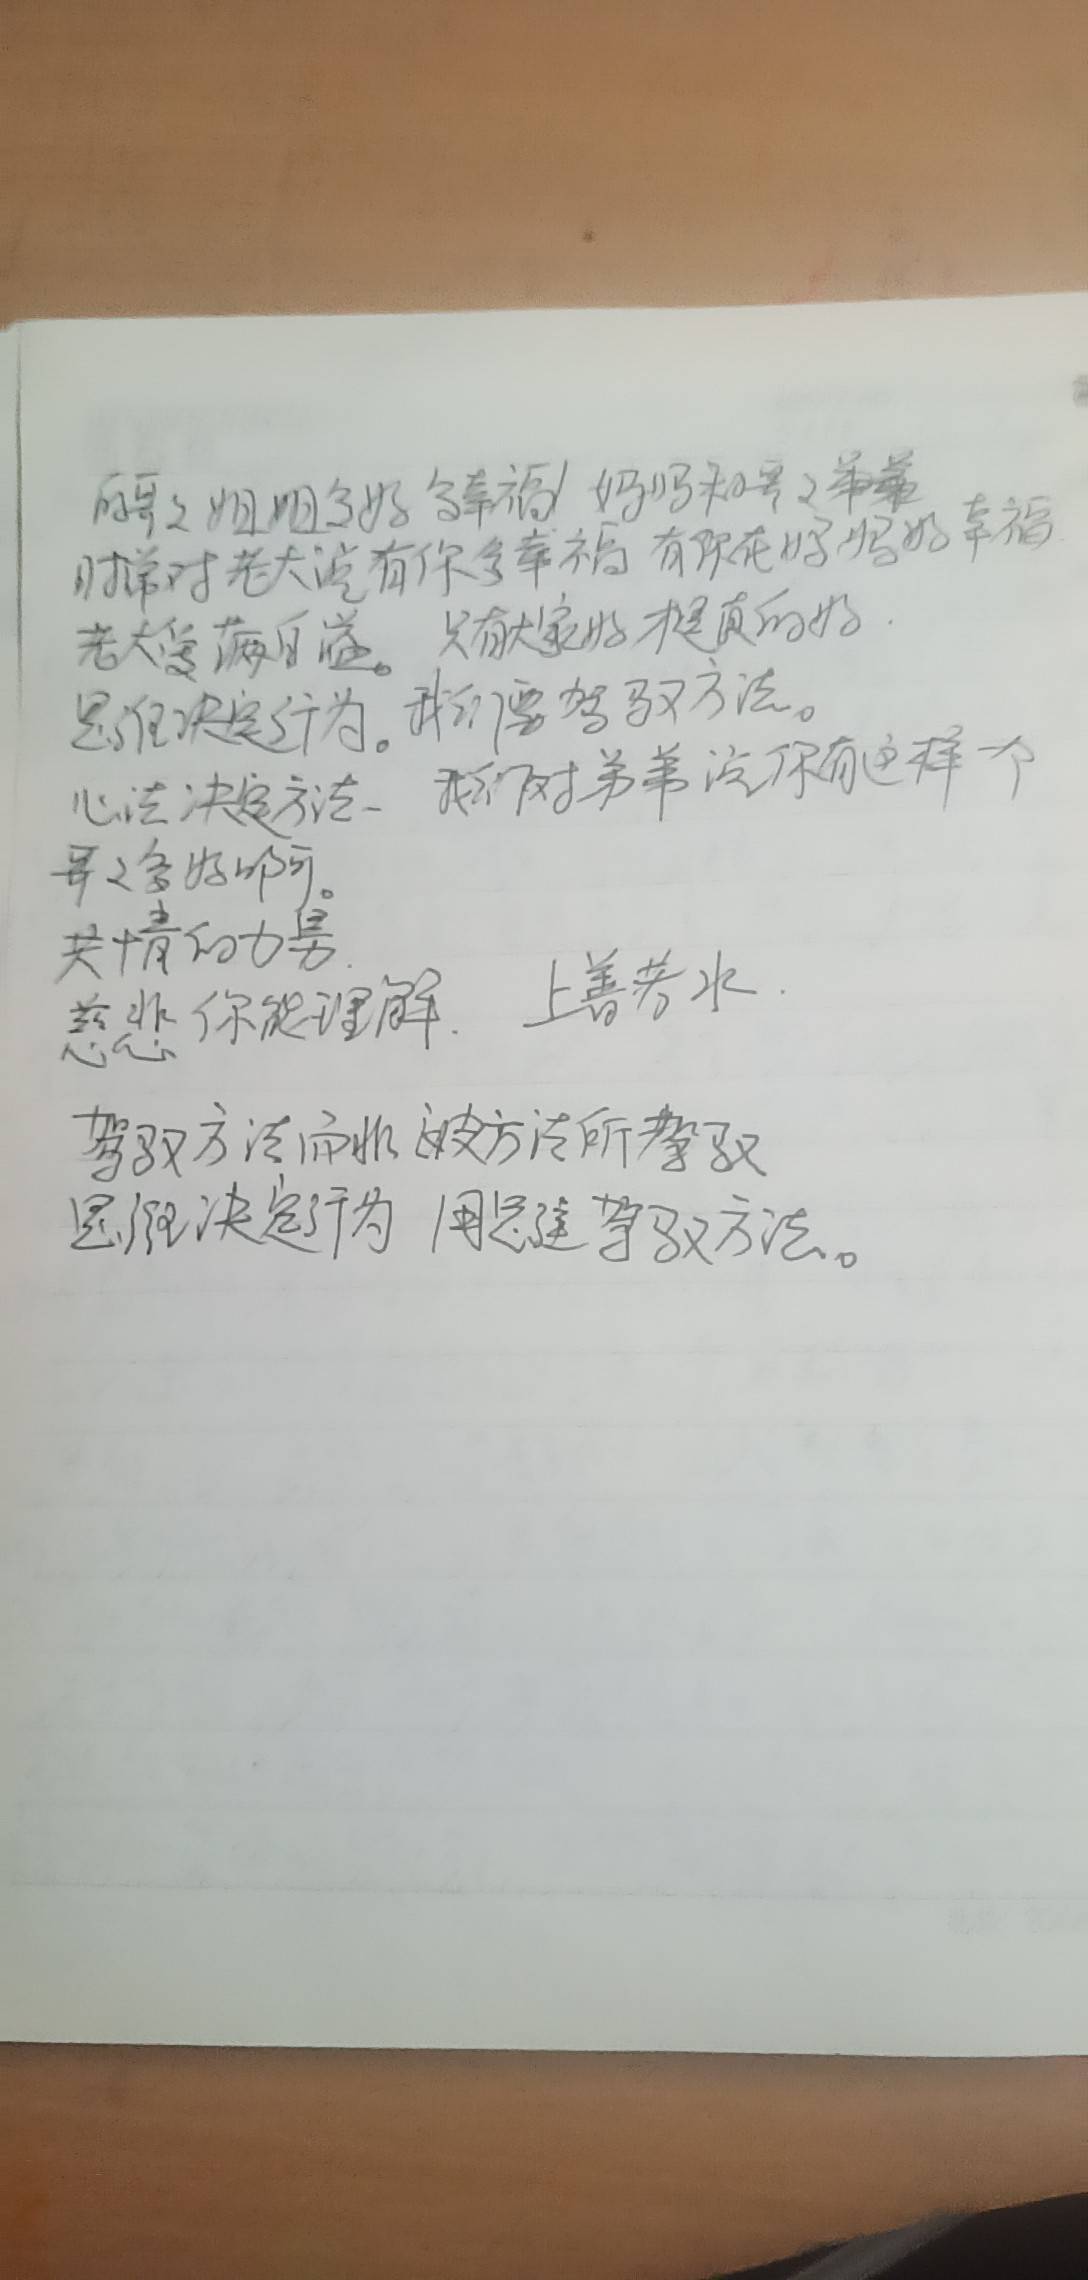 的哥々姐姐多好 多幸福! 妈妈和哥々弟弟
时常对老大说有你多幸福 有你在妈妈好幸福
老大爱满自溢。 只有大家好才是真的好.
思维决定行为。我们要驾驭方法。
心法决定方法- 我们对弟弟说你有这样一个
哥々多好啊。
共情的力量.
慈悲 你能理解. 上善若水.
驾驭方法而非被方法所驾驭
思维决定行为 用思维驾驭方法。